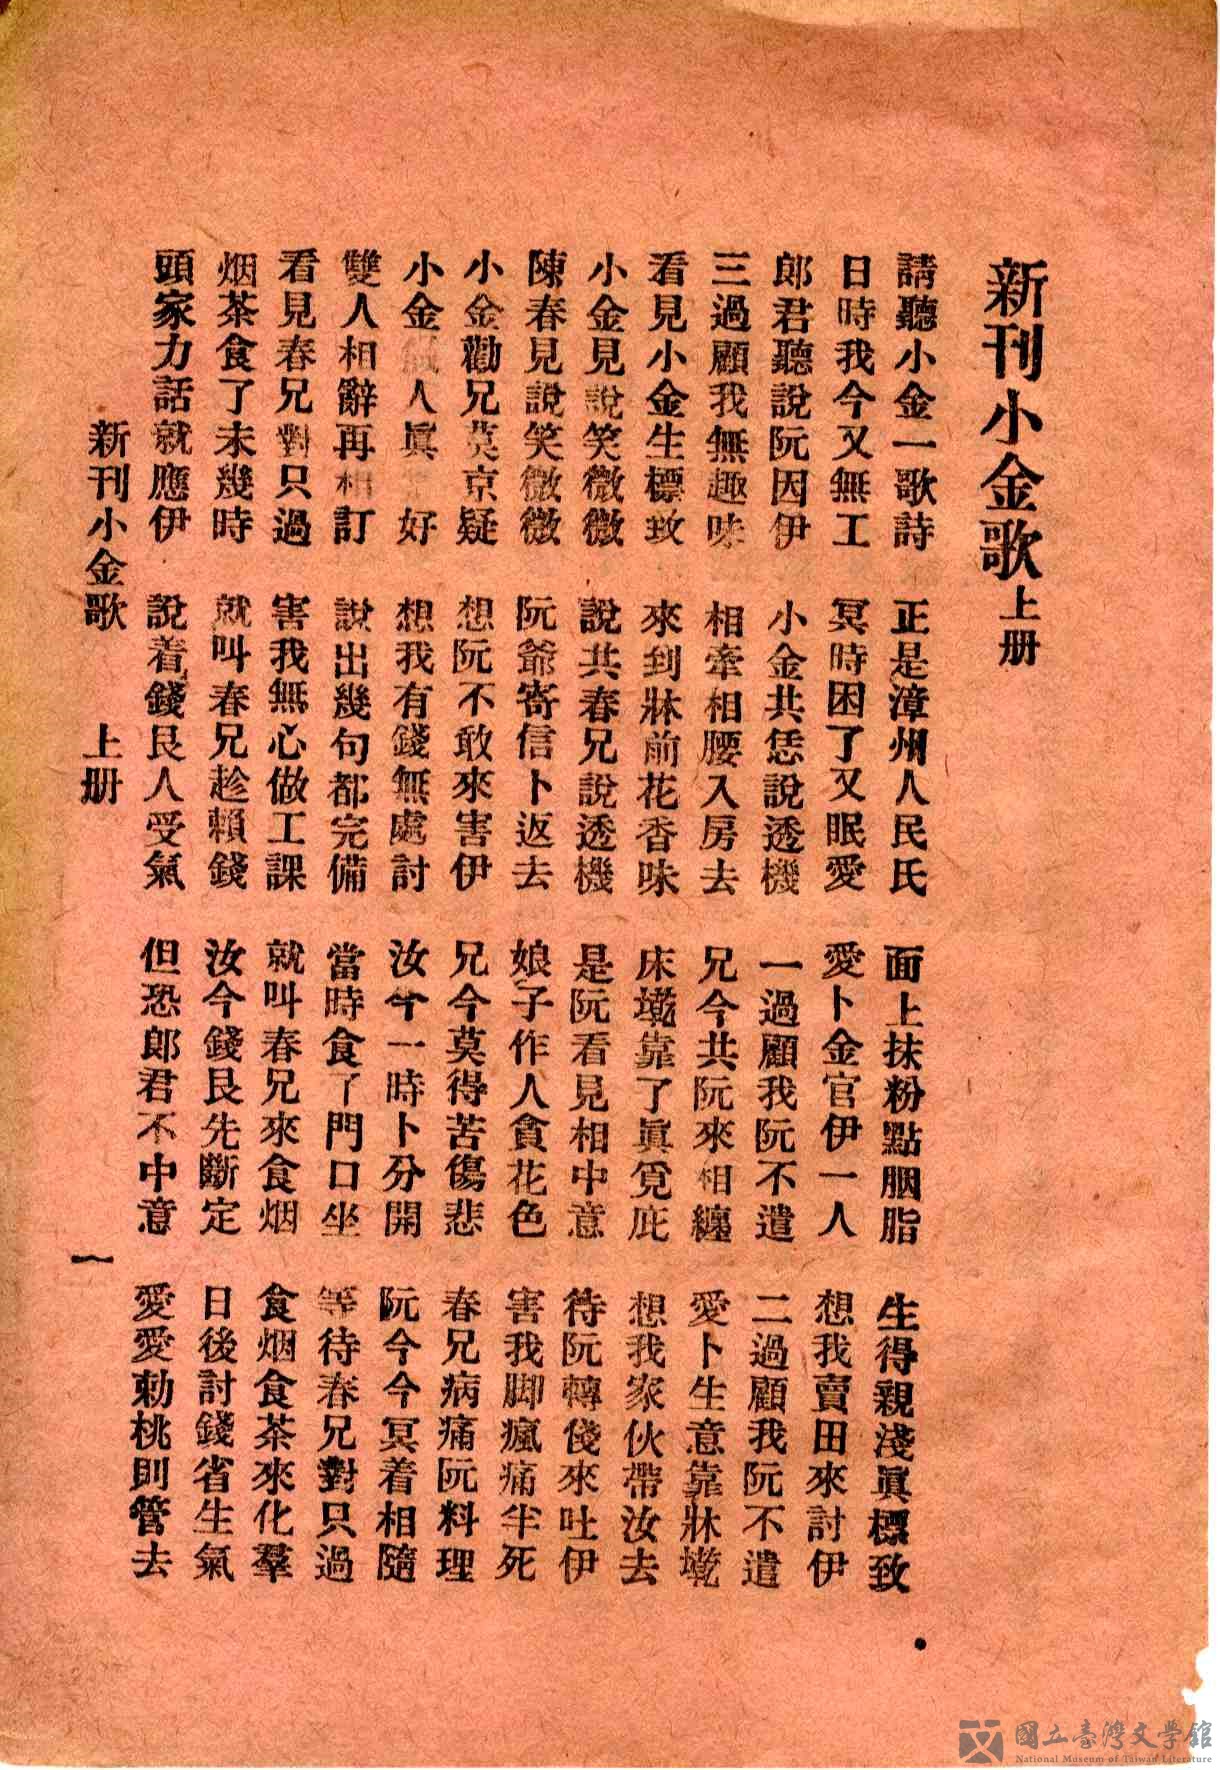 新刊小金歌上册
請聽小金一歌詩 正是漳州人民氏 面上抹粉點胭脂 生得親淺眞標致
日時我今又無工 冥時困了又眠愛 愛卜金官伊一人 想我賣田來討伊
郎君聽說阮因伊 小金共恁說透機 一過顧我阮不遣 二過顧我阮不遣
三過顧我無趣味 相牽相腰入房去 兄今共阮來相纏 愛卜生意靠牀墘
看見小金生標致 來到牀前花香味 床墘靠了眞寬庇 想我家伙帶汝去
小金見說笑微微 說共春兄說透機 是阮看見相中意 待阮轉倿來吐伊
陳春見說笑微微 阮爺寄信卜返去 娘子作人貪花色 害我脚瘋痛半死
小金勸兄莫京疑 想阮不敢來害伊 兄今莫得苦傷悲 春兄病痛阮料理
小金 人眞 好 想我有錢無處討 汝今一時卜分開 阮今今冥着相隨
雙人相辭再相訂 說出幾句都完備 當時食了門口坐 等待春兄對只過
看見春兄對只過 害我無心做工課 就叫春兄來食烟 食烟食茶來化羣
烟茶食了未幾時 就叫春兄趁賴錢 汝今錢艮先斷定 日後討錢省生氣
頭家力話就應伊 說着錢艮人受氣 但恐郎君不中意 愛愛勅桃則管去
新刊小金歌 上册 一
國立臺灣文學館
National Museum of Taiwan Literature